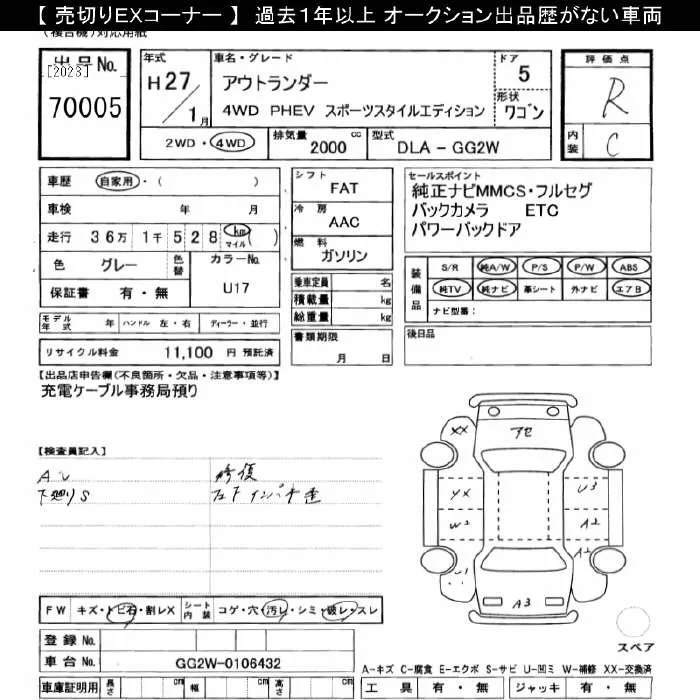 【 売切りEXコーナー 】 過去1年以上 オークション出品歴がない車両
(複合機)対応用紙
出品No.
[2023]
70005
年式
H27/1月
車名・グレード
アウトランダー
4WD PHEV スポーツスタイルエディション
ドア
5
形状
ワゴン
2WD・4WD
排気量
2000 cc
型式
DLA - GG2W
評価点
R
内装
C
車歴 自家用・( )
車検 年 月
走行 36万 1千 528 km マイル ( )
色 グレー 色替
カラーNo.
U17
保証書 有・無
モデル年式 年 ハンドル 左・右 ディーラー・並行
リサイクル料金 11,100 円 預託済
シフト
FAT
冷房
AAC
燃料
ガソリン
乗車定員 名
積載量 kg
総重量 kg
書類期限
月 日
セールスポイント
純正ナビMMCS・フルセグ
バックカメラ ETC
パワーバックドア
装備品
S/R 純A/W P/S P/W ABS
純TV 純ナビ 革シート 外ナビ エアB
ナビ型番:
後日品
【出品店申告欄(不良箇所・欠品・注意事項等)】
充電ケーブル事務局預り
【検査員記入】
AU 修復
下廻りS
アセ
XX
YX
U3
W2
A2
A2
U1
A3
スペア
FW キズ・トビ石・割レX シート内装 コゲ・穴・汚レ・シミ・破レ・スレ
登録 No.
車台 No. GG2W-0106432
A-キズ C-腐食 E-エクボ S-サビ U-凹ミ W-補修 XX-交換済
車庫証明用 長さ cm 幅 cm 高さ cm
工具 有・無 ジャッキ 有・無